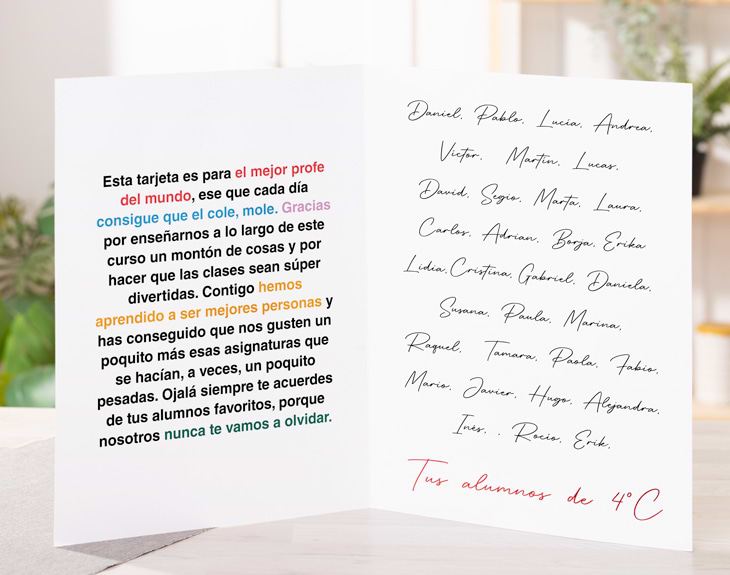 Esta tarjeta es para el mejor profe
del mundo, ese que cada día
consigue que el cole, mole. Gracias
por enseñarnos a lo largo de este
curso un montón de cosas y por
hacer que las clases sean súper
divertidas. Contigo hemos
aprendido a ser mejores personas y
has conseguido que nos gusten un
poquito más esas asignaturas que
se hacían, a veces, un poquito
pesadas. Ojalá siempre te acuerdes
de tus alumnos favoritos, porque
nosotros nunca te vamos a olvidar.
Daniel, Pablo, Lucia, Andrea,
Victor, Martin, Lucas,
David, Segio, Marta, Laura,
Carlos, Adrian, Borja, Erika
Lidia, Cristina, Gabriel, Daniela,
Susana, Paula, Marina,
Raquel, Tamara, Paola, Fabio,
Mario, Javier, Hugo, Alejandra,
Inés, , Rocio, Erik,
Tus alumnos de 4ºC